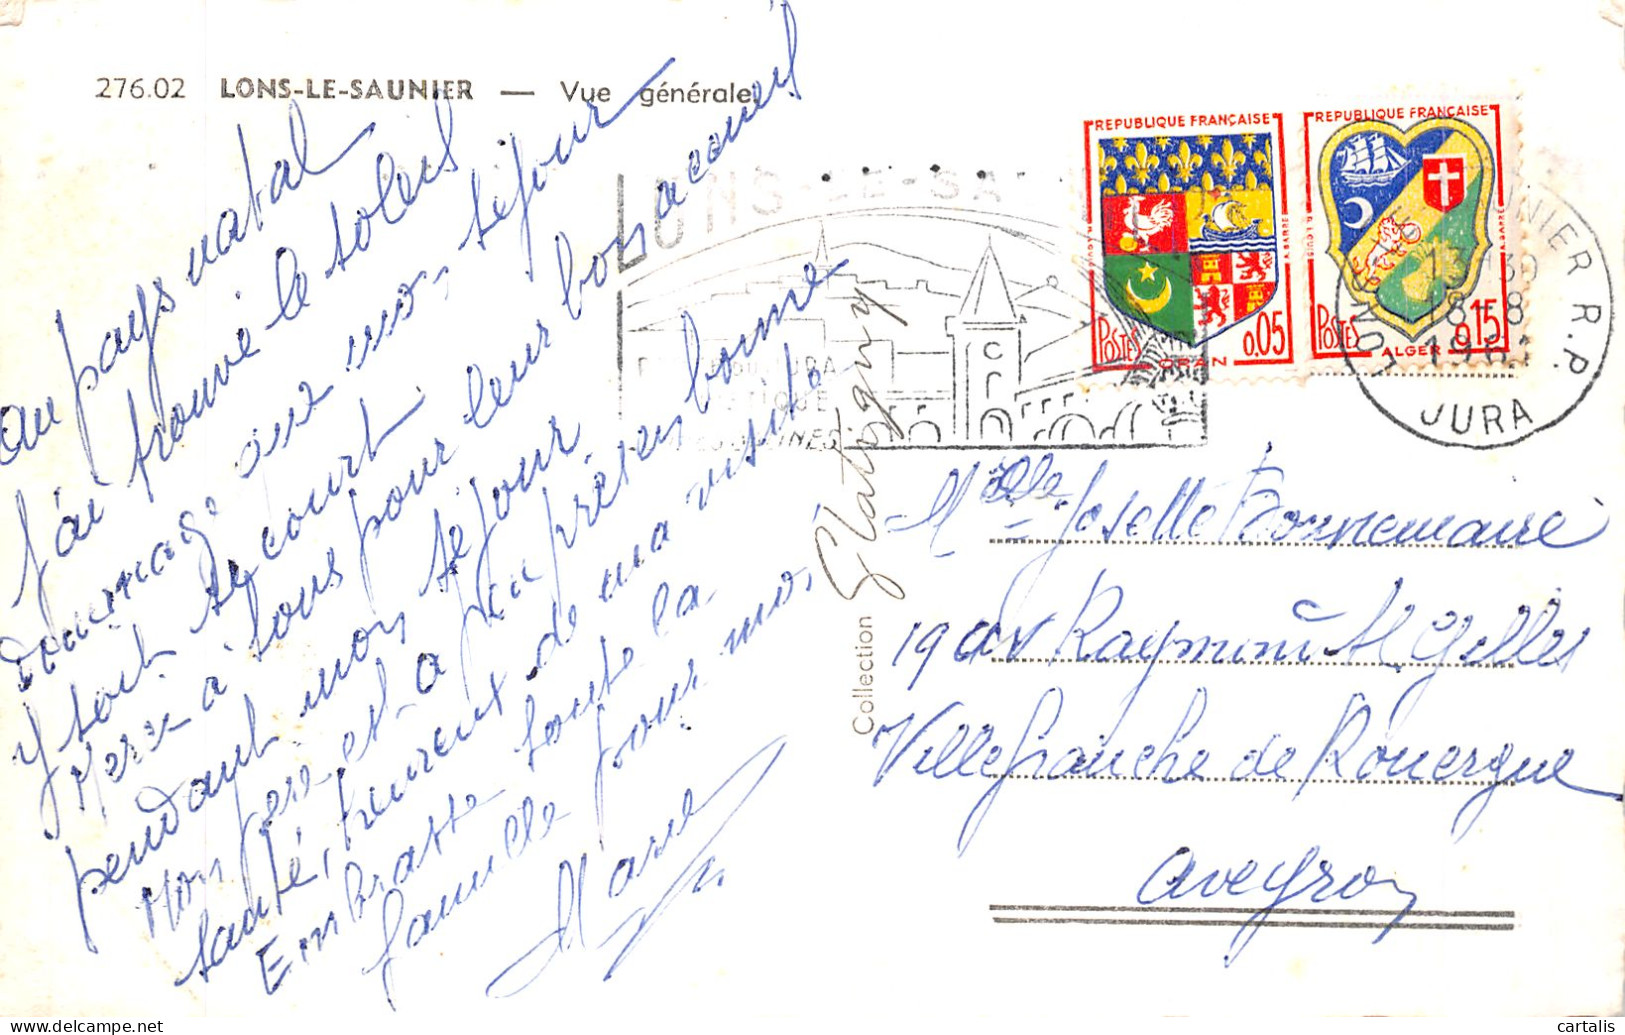 276.02 LONS-LE-SAUNIER — Vue générale
au pays natal
j'ai trouvé le soleil
dommage que mon séjour
y soit si court
Merci à tous pour leur bon accueil
pendant mon séjour
Mon père est à peu près en bonne
santé, heureux de ma visite
Embrasse toute la
famille pour moi
Marie
Collection
LONS-LE-SA
DU JURA
REPUBLIQUE FRANÇAISE
POSTES
0,05
ORAN
REPUBLIQUE FRANÇAISE
POSTES
0,15
ALGER
LONS-LE-SAUNIER R.P.
18-8
JURA
Melle Joselle Bonnemaire
19 av Raymond St Gilles
Villefranche de Rouergue
Aveyron
cartalis
delcampe.net